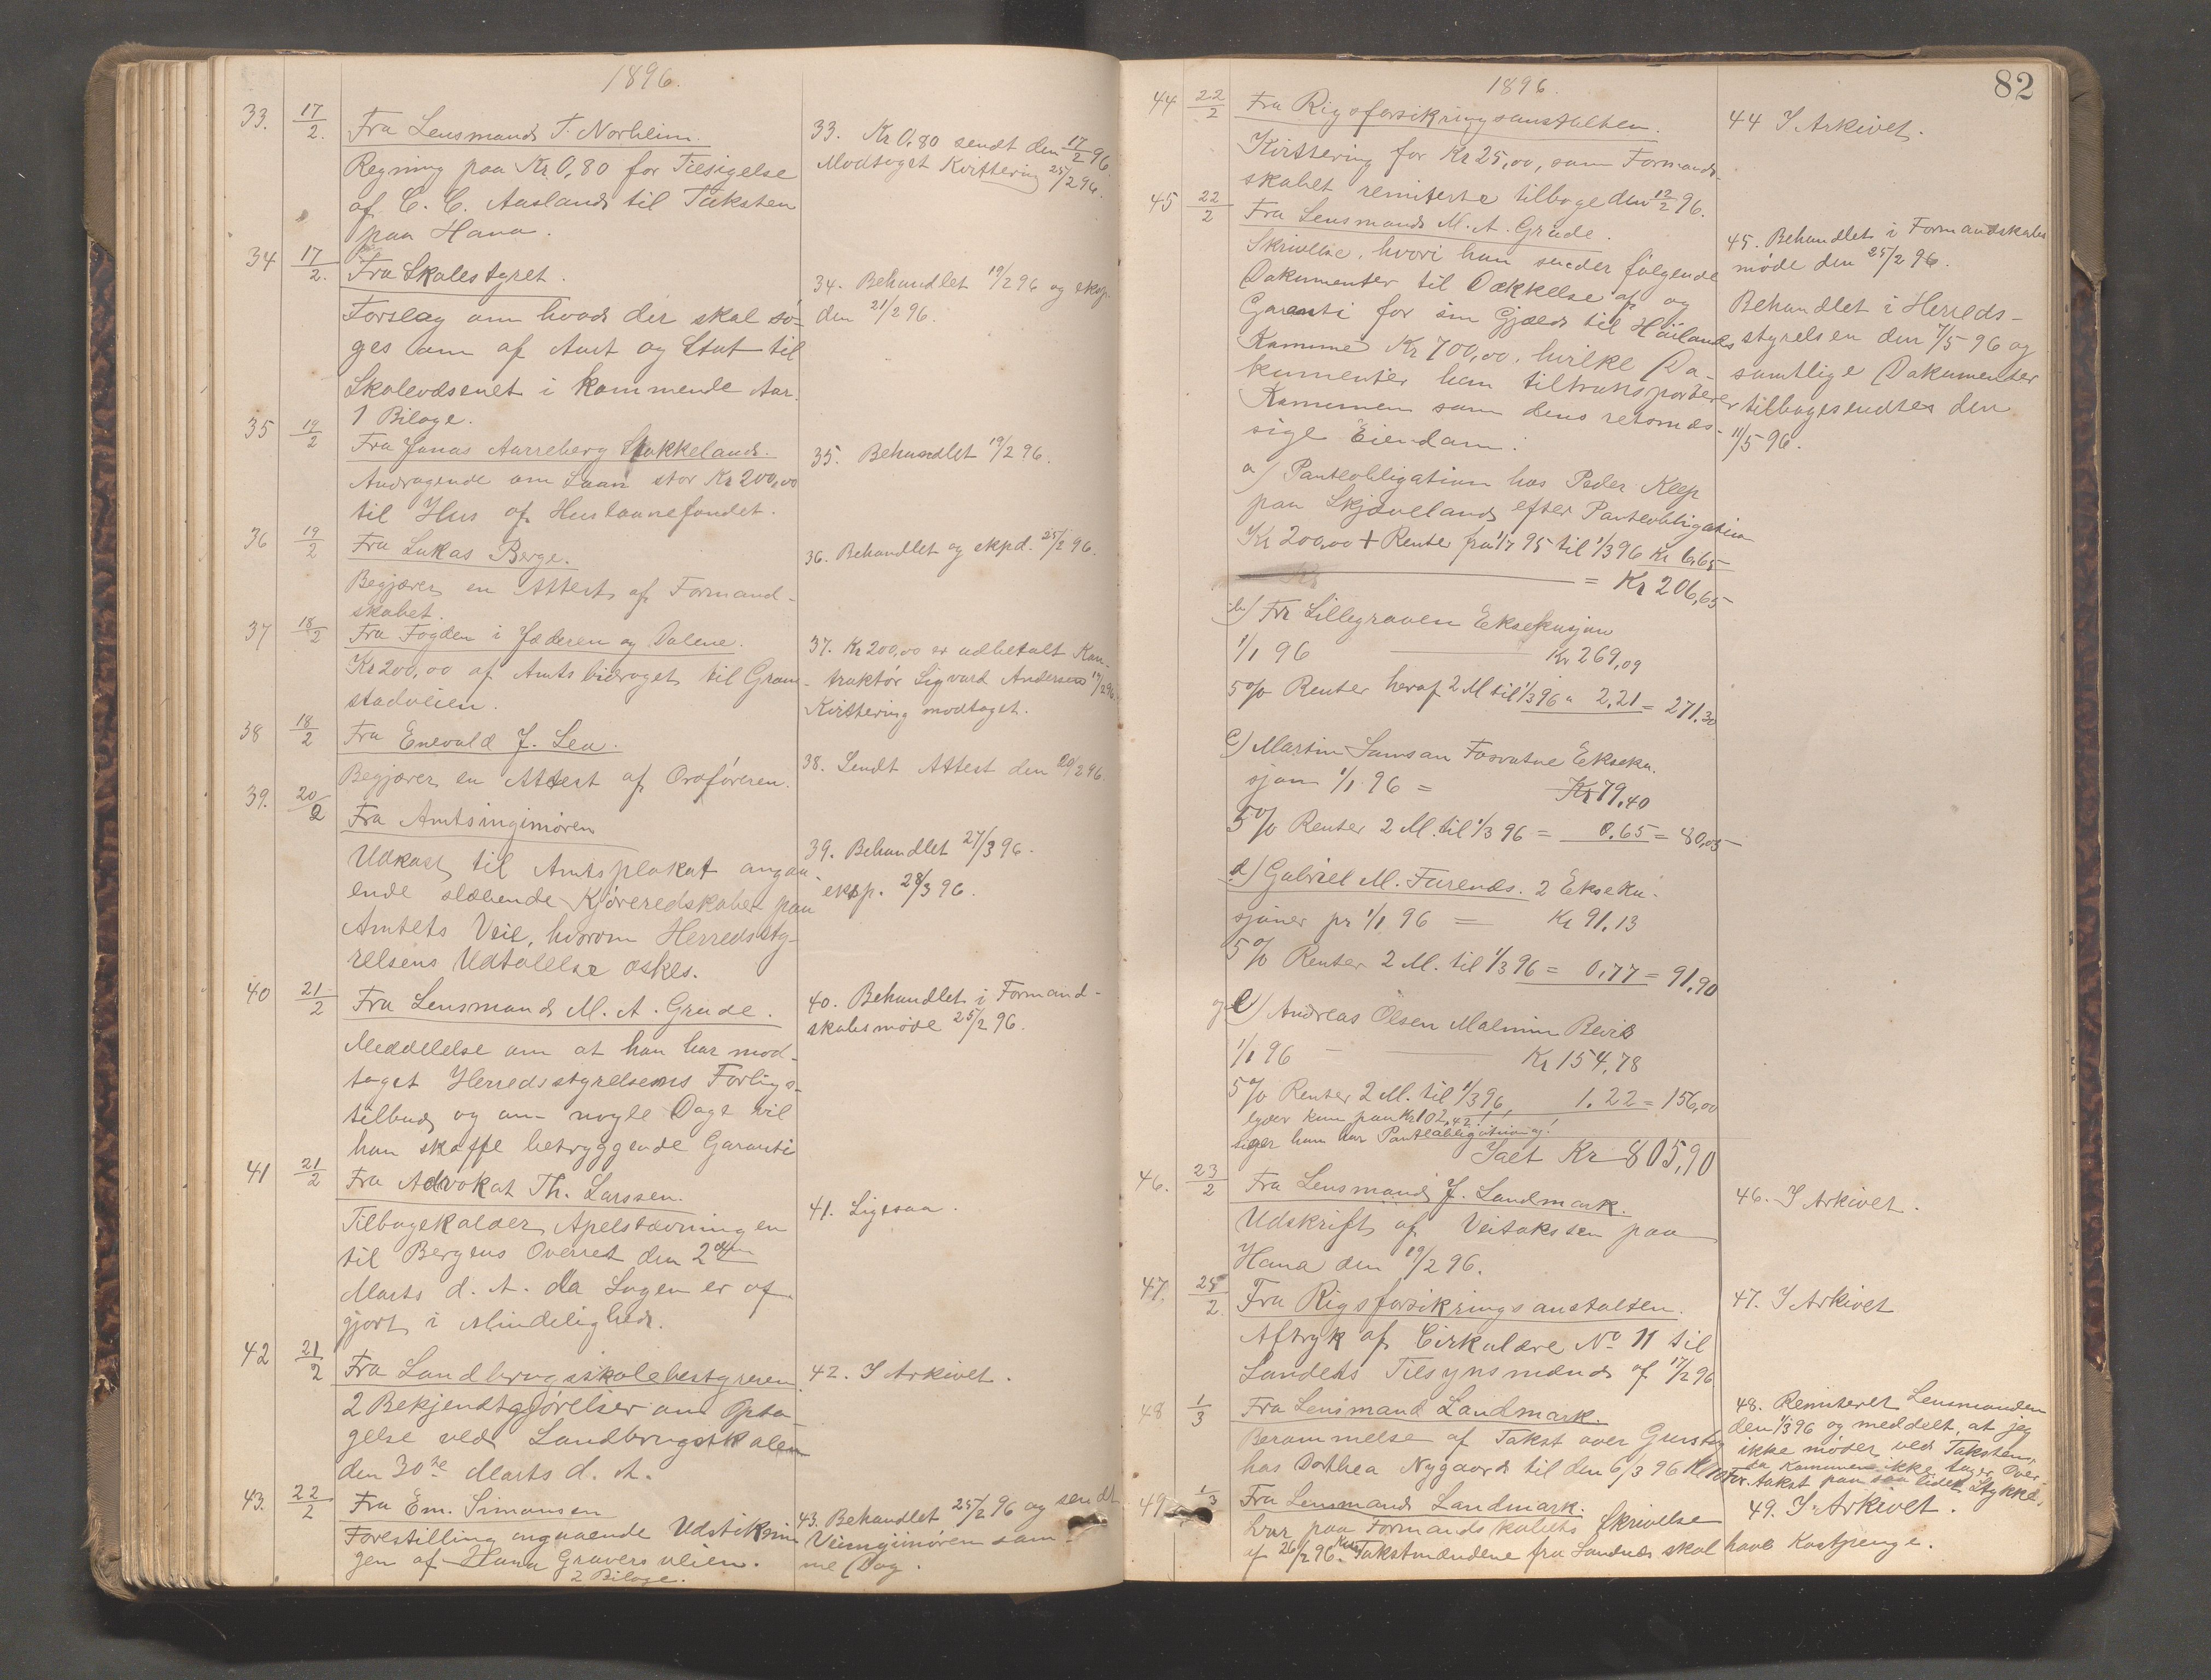 1896.
33. 17/2. Fra Lensmand T. Norheim.
Regning paa Kr 0,80 for Tilsigelse
af C. C. Aasland til Taksten
paa Hana.
33. Kr 0,80 sendt den 17/2 96.
Modtaget Kvittering 25/2 96.
34 17/2. Fra Skolestyret.
Forslag om hvad der skal sö-
ges om af Amt og Stat til
Skolevæsenet i kommende Aar.
1 Bilage.
34. Behandlet 19/2 96 og eksp.
den 21/2 96.
35 19/2 Fra Jonas Aarreberg Stokkeland.
Andragende om Laan stor Kr 200,00
til Hus af Huslaanefondet.
35. Behandlet 19/2 96.
36 19/2 Fra Lukas Berge.
Begjærer en Attest af Formand-
skabet.
36. Behandlet og expd. 25/2 96.
37 18/2 Fra Fogden i Jæderen og Dalene.
Kr 200,00 af Amtsbidraget til Gram-
stadveien.
37. Kr 200,00 er udbetalt Kon-
traktör Sigvard Andersen 19/2 96.
Kvittering modtaget.
38 18/2 Fra Enevald J. Lea.
Begjærer en Attest af Ordföreren.
38. Sendt Attest den 20/2 96.
39. 20/2 Fra Amtsinginiören
Udkast til Amtsplakat angaa-
ende slæbende Kjöreredskaber paa
Amtets Veie, hvorom Herredssty-
relsens Udtalelse æskes.
39. Behandlet 27/3 96.
eksp. 28/3 96.
40 21/2 Fra Lensmand M. A. Grude.
Meddelelse om at han har mod-
taget Herredsstyrelsens Forligs-
tilbud og om nogle Dage vil
han skaffe betryggende Garanti
40. Behandlet i Formand-
skabsmöde 25/2 96.
41 21/2 Fra Advokat Th. Larssen.
Tilbagekalder Apelstævningen
til Bergens Overret den 2den
Marts d. A. da Sagen er af-
gjort i Mindelighed.
41. Ligesaa.
42 21/2 Fra Landbrugsskolebestyreren.
2 Bekjendtgjörelser om Opta-
gelse ved Landbrugsskolen
den 30te Marts d. A.
42. I Arkivet.
43. 22/2 Fra Em. Simonsen
Forestilling angaaende Udstiknin
gen af Hana Gravers veien.
2 Bilage.
43. Behandlet 25/2 96 og sendt
Veiinginiören sam-
me Dag.
82
1896.
44 22/2 Fra Rigsforsikringsanstalten.
Kvittering for Kr 25,00, som Formand-
skabet remiterte tilbage den 12/2 96.
44 I Arkivet.
45 22/2 Fra Lensmand M. A. Grude.
Skrivelse, hvori han sender fölgende
Dokumenter til Dækkelse af og
Garanti for sin Gjæld til Höilands
Kommune Kr 700,00, hvilke Do-
kumenter han tiltransporterer
Kommunen som dens retmæs-
sige Eiendom:
45. Behandlet i Formandskabs
möde den 25/2 96.
Behandlet i Herreds-
styrelsen den 7/5 96 og
samtlige Dokumenter
tilbagesendtes den
11/5 96.
a) Panteobligation hos Peder Klep
paa Skjæveland efter Panteobligation
Kr 200,00 + Rente fra 1/7 95 til 1/3 96 Kr 6,65
= Kr 206,65
b) Fr Lillegraven Eksekusjon
1/1 96 Kr 269,09
5% Renter heraf 2 M til 1/3 96 " 2,21 = 271,30
c) Martin Samson Fosvatne Ekseku-
sjon 1/1 96 = Kr 79,40
5% Renter 2 M. til 1/3 96 = 0,65 = 80,05
d) Gabriel M. Furenes. 2 Ekseku-
sjoner pr 1/1 96 = Kr 91,13
5% Renter 2 M. til 1/3 96 = 0,77 = 91,90
og e) Andreas Olsen Malmin Bevis
1/1 96 Kr 154,78
5% Renter 2 M. til 1/3 96, 1,22 = 156,00
lyder kun paa Kr 102,42!
siger han har Panteobligation og!
Ialt Kr 805,90
46. 23/2 Fra Lensmand J. Landmark.
Udskrift af Veitaksten paa
Hana den 19/2 96.
46. I Arkivet.
47. 25/2 Fra Rigsforsikringsanstalten.
Aftryk af Cirkulære No 11 til
Landets Tilsynsmænd af 17/2 96
47. I Arkivet
48 1/3 Fra Lensmand Landmark.
Berammelse af Takst over Grustag
hos Dorthea Nygaard til den 6/3 96 Kl 10 For.
48. Remiteret Lensmanden
den 1/3 96 og meddelt, at jeg
ikke möder ved Taksten,
da Kommunen ikke tager Over-
takst paa saa lidet Stykke.
49. 1/3 Fra Lensmand Landmark.
Svar paa Formandskabets Skrivelse
af 26/2 96. Kun Takstmændene fra Sandnes skal have Kostpenge.
49. I Arkivet.